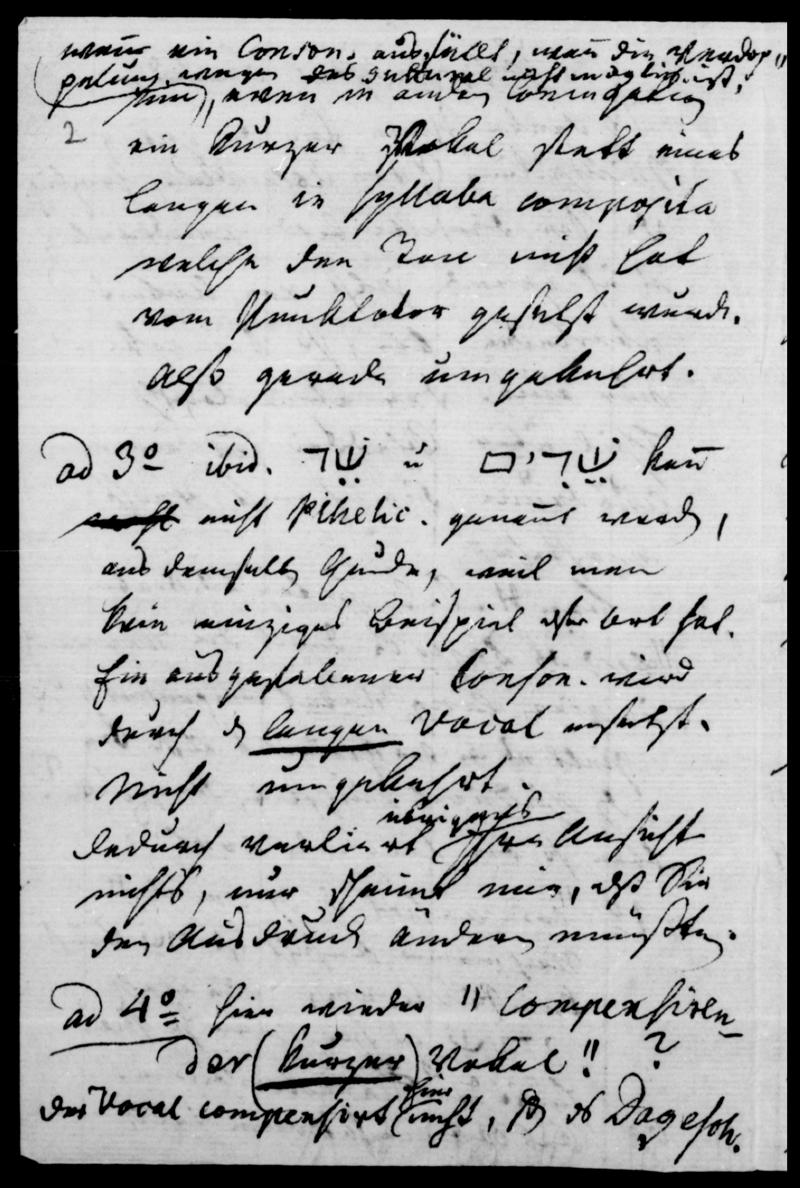 wenn ein Conson. ausfällt, wenn die Verdop„
pelung wegen des Guttural nicht möglich ist,
nur), wenn in andern Conjugation
2 ein kurzer Vokal statt eines
langen in syllaba composita
welche den Ton nicht hat
vom Punktator gesetzt wurde.
Also gerade umgekehrt.
ad 3º ibid. שֵׁד u שֵׁדִים kann
nicht Pihelic. genannt werden,
aus demselben Grunde, weil man
kein einziges Beispiel der Art hat.
Ein ausgefallener Conson. wird
durch d langen Vocal ersetzt.
Nicht umgekehrt.
Dadurch verliert übrigens Ihre Ansicht
nichts, nur scheint mir, daß Sie
den Ausdruck ändern müßten.
ad 4º hier wieder " Compensiren-
der (kurzer) Vokal!! ?
der Vocal compensirt hier nicht, das Dagesch.